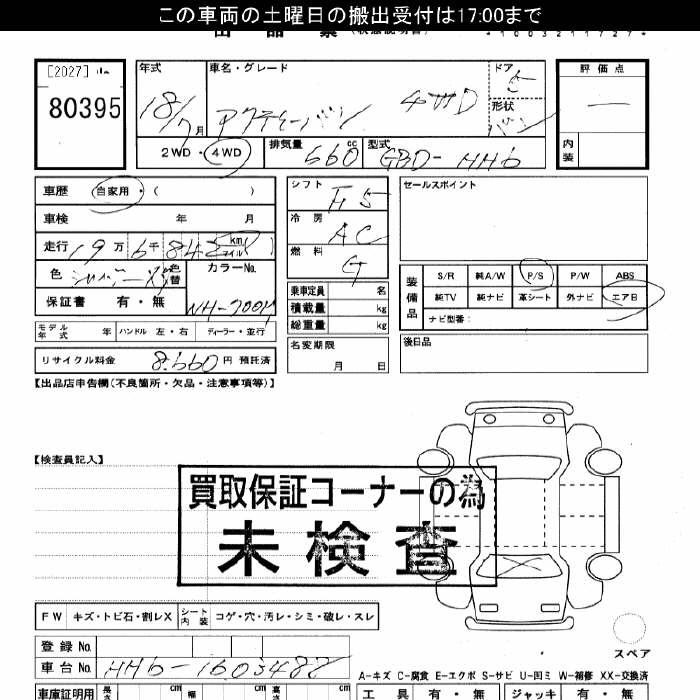 この車両の土曜日の搬出受付は17:00まで
[2027]
80395
年式
18/7月
車名・グレード
アクティーバン 4WD
ドア
5
形状
バン
評価点
—
内装
2WD・4WD
排気量
660cc
型式
GBD-HH6
車歴 自家用・( )
車検 年 月
走行 19万6千842km マイル
色 シルバーM 色替
カラーNo.
NH-700M
保証書 有・無
モデル年式 年 ハンドル 左・右 ディーラー・並行
リサイクル料金 8,660円 預託済
シフト F5
冷房 AC
燃料 G
乗車定員 名
積載量 kg
総重量 kg
名変期限
月 日
セールスポイント
装備品
S/R 純A/W P/S P/W ABS
純TV 純ナビ 革シート 外ナビ エアB
ナビ型番:
後日品
【出品店申告欄(不良箇所・欠品・注意事項等)】
【検査員記入】
買取保証コーナーの為
未検査
FW キズ・トビ石・割レX シート内装 コゲ・穴・汚レ・シミ・破レ・スレ
スペア
登録No.
車台No. HH6-1603487
A-キズ C-腐食 E-エクボ S-サビ U-凹ミ W-補修 XX-交換済
車庫証明用 長さ cm 幅 cm 高さ cm
工具 有・無 ジャッキ 有・無